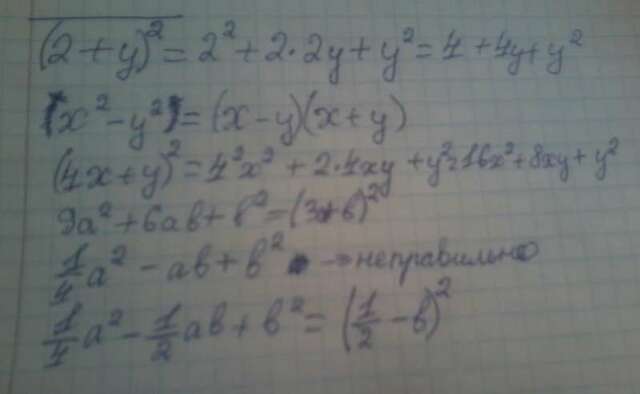 (2+y)² = 2² + 2·2y + y² = 4 + 4y + y²
(x² - y²) = (x - y)(x + y)
(4x + y)² = 4²x² + 2·4xy + y² = 16x² + 8xy + y²
9a² + 6ab + b² = (3 + b)²
1/4 a² - ab + b² → неправильно
1/4 a² - 1/2 ab + b² = (1/2 - b)²